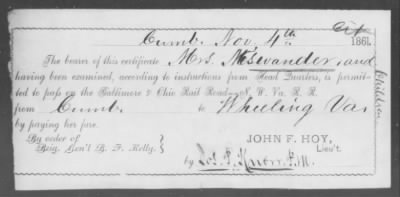 Cit
Cumb. Nov. 4th 1861
The bearer of this certificate Mrs. Niswander, and
having been examined, according to instructions from Head Quarters, is permit-
ted to pass on the Baltimore & Ohio Rail Road—N. W. Va. R. R.
from Cumb. to Wheeling Va.
by paying her fare.
By order of
Brig. Gen'l B. F. Kelly.
JOHN F. HOY,
Lieu't.
by Jos. P. P.M.
Children